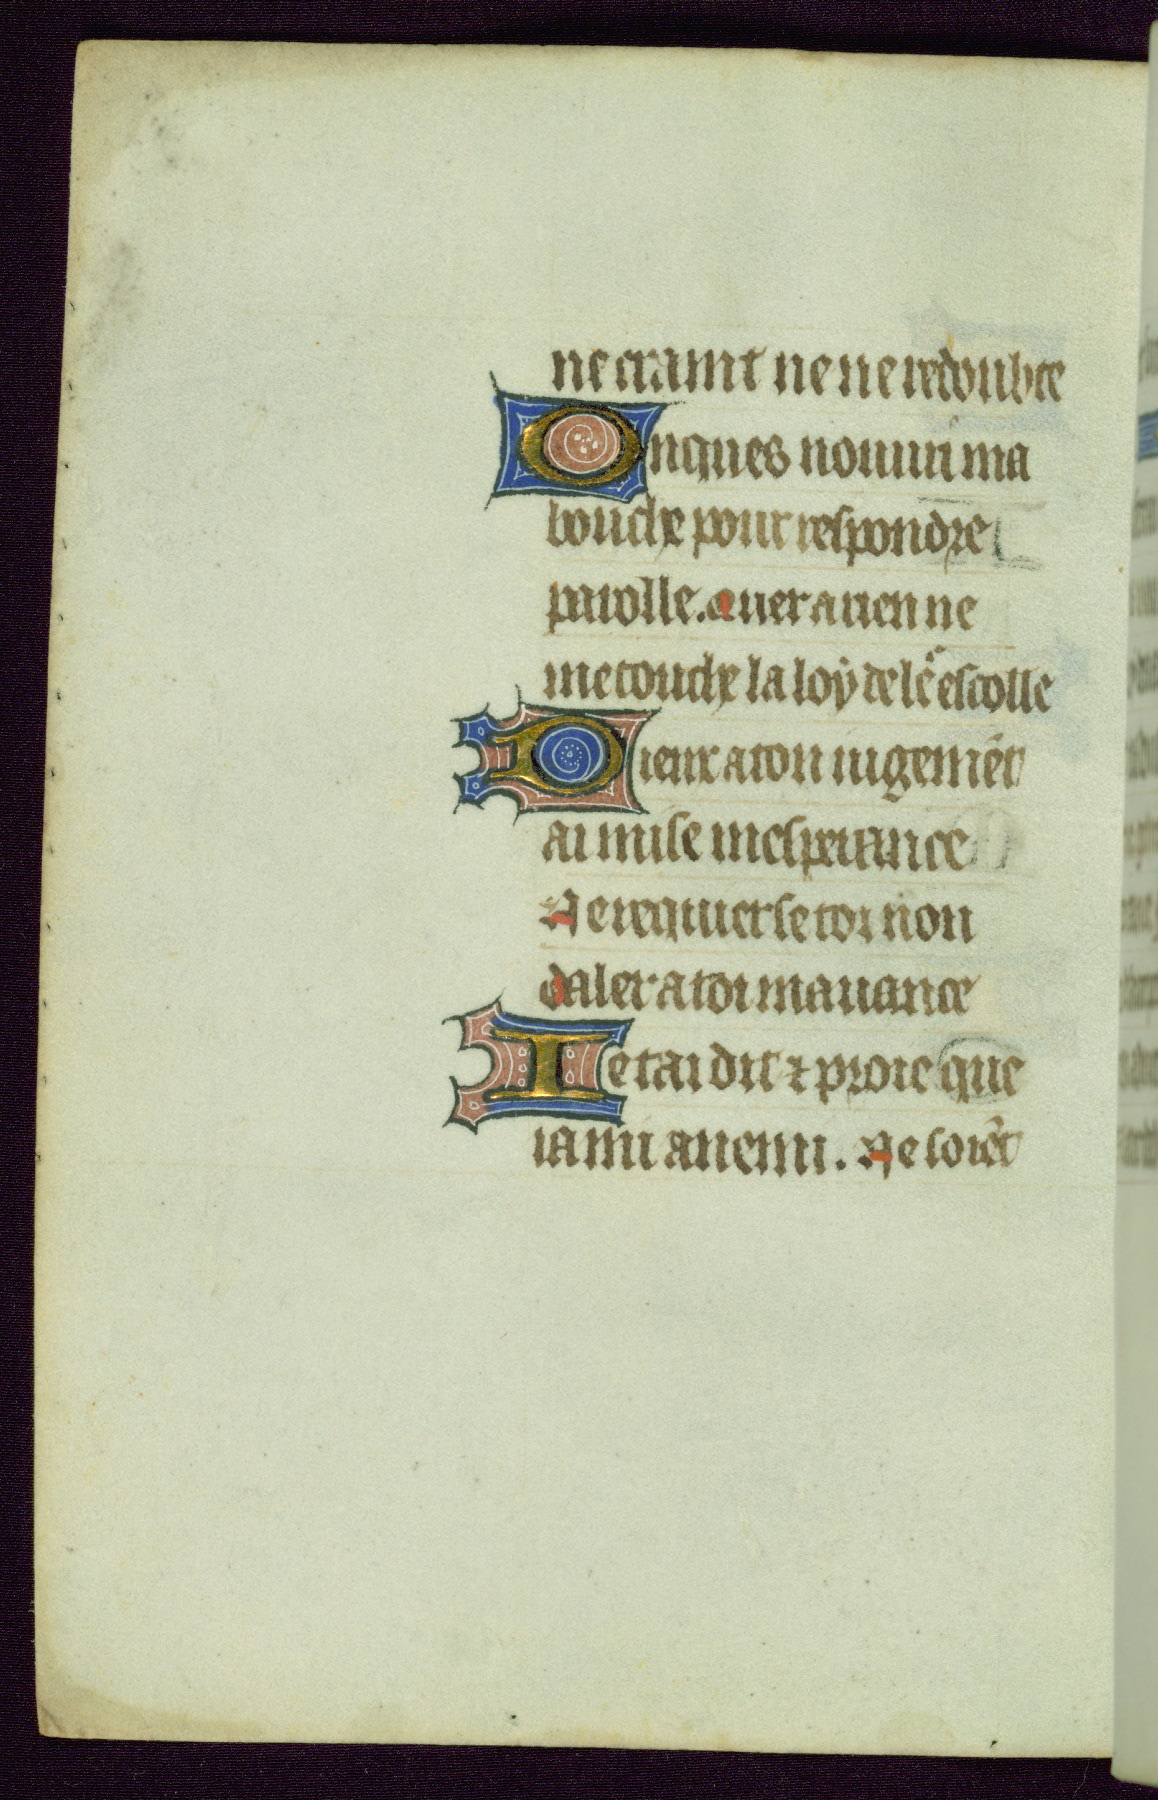 ne craint ne ne redoubte
Onques nouuri ma
bouche pour respondre
parolle. quer a rien ne
me touche la loy de lẽ escolle
Dieux a ton iugemẽt
ai mise mesperance
Ne requier se toi non
daler a toi mauance
Ie tai dit ⁊ proie que
iamii anemi. Ne soiẽt